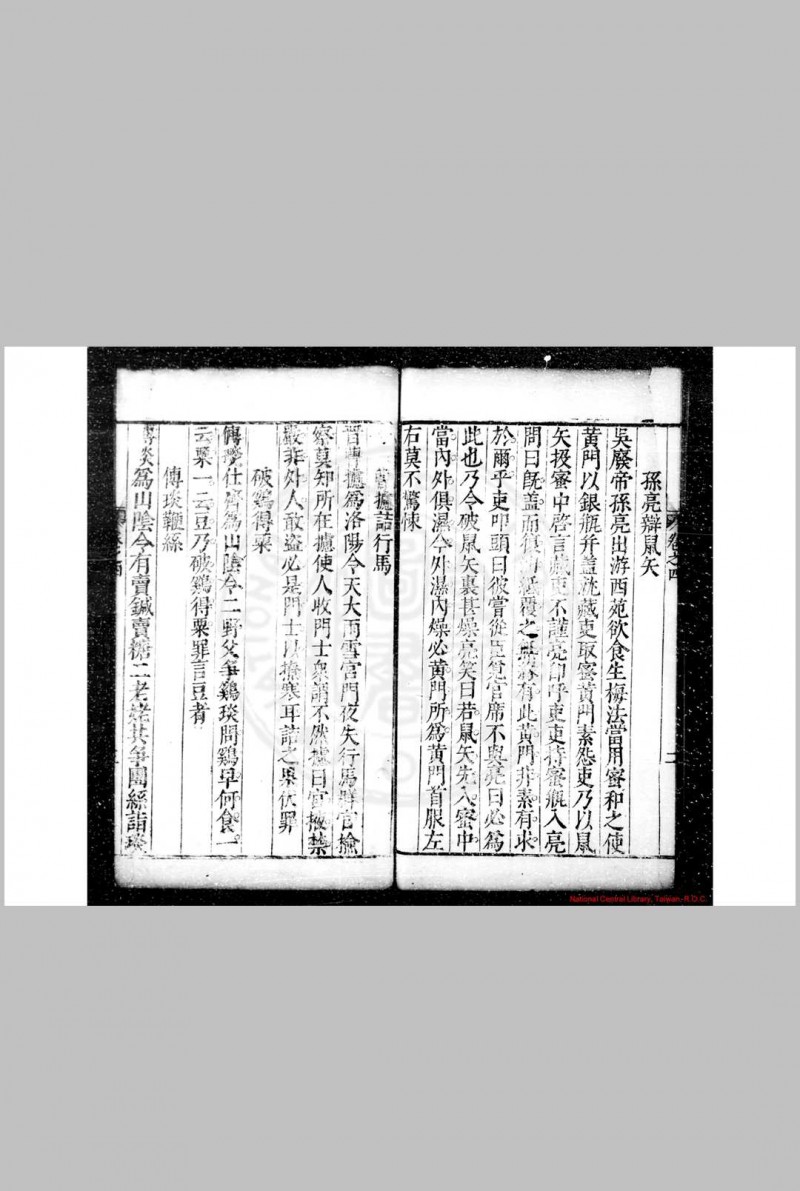 卷之四
孫亮辯鼠矢
吳廢帝孫亮出游西苑欲食生梅法當用蜜和之使
黃門以銀瓶并蓋就藏吏取蜜黃門素怨吏乃以鼠
矢投蜜中啓言藏吏不謹亮即呼吏吏持蜜瓶入亮
問曰旣蓋而復 紙覆之 有此黃門非素有求
於爾乎吏叩頭曰彼嘗從臣 官席不與亮曰必爲
此也乃令破鼠矢裏甚燥亮笑曰若鼠矢先入蜜中
當內外俱濕今外濕內燥必黃門所爲黃門首服左
右莫不驚悚
曹攄詰行馬
晉曹攄爲洛陽令天大雨雪宮門夜失行馬群官檢
察莫知所在攄使人收門士衆謂不然攄曰宮掖禁
嚴非外人敢盜必是門士以燎寒耳詰之果伏罪
破鷄得粟
傅琰仕齊爲山陰令二野父爭鷄琰問鷄早何食一
云粟一云豆乃破鷄得粟罪言豆者
傅琰鞭絲
傅琰爲山陰令有賣鍼賣糖二老姥共爭團絲詣琰
卷之四
National Central Library, Taiwan, R.O.C.